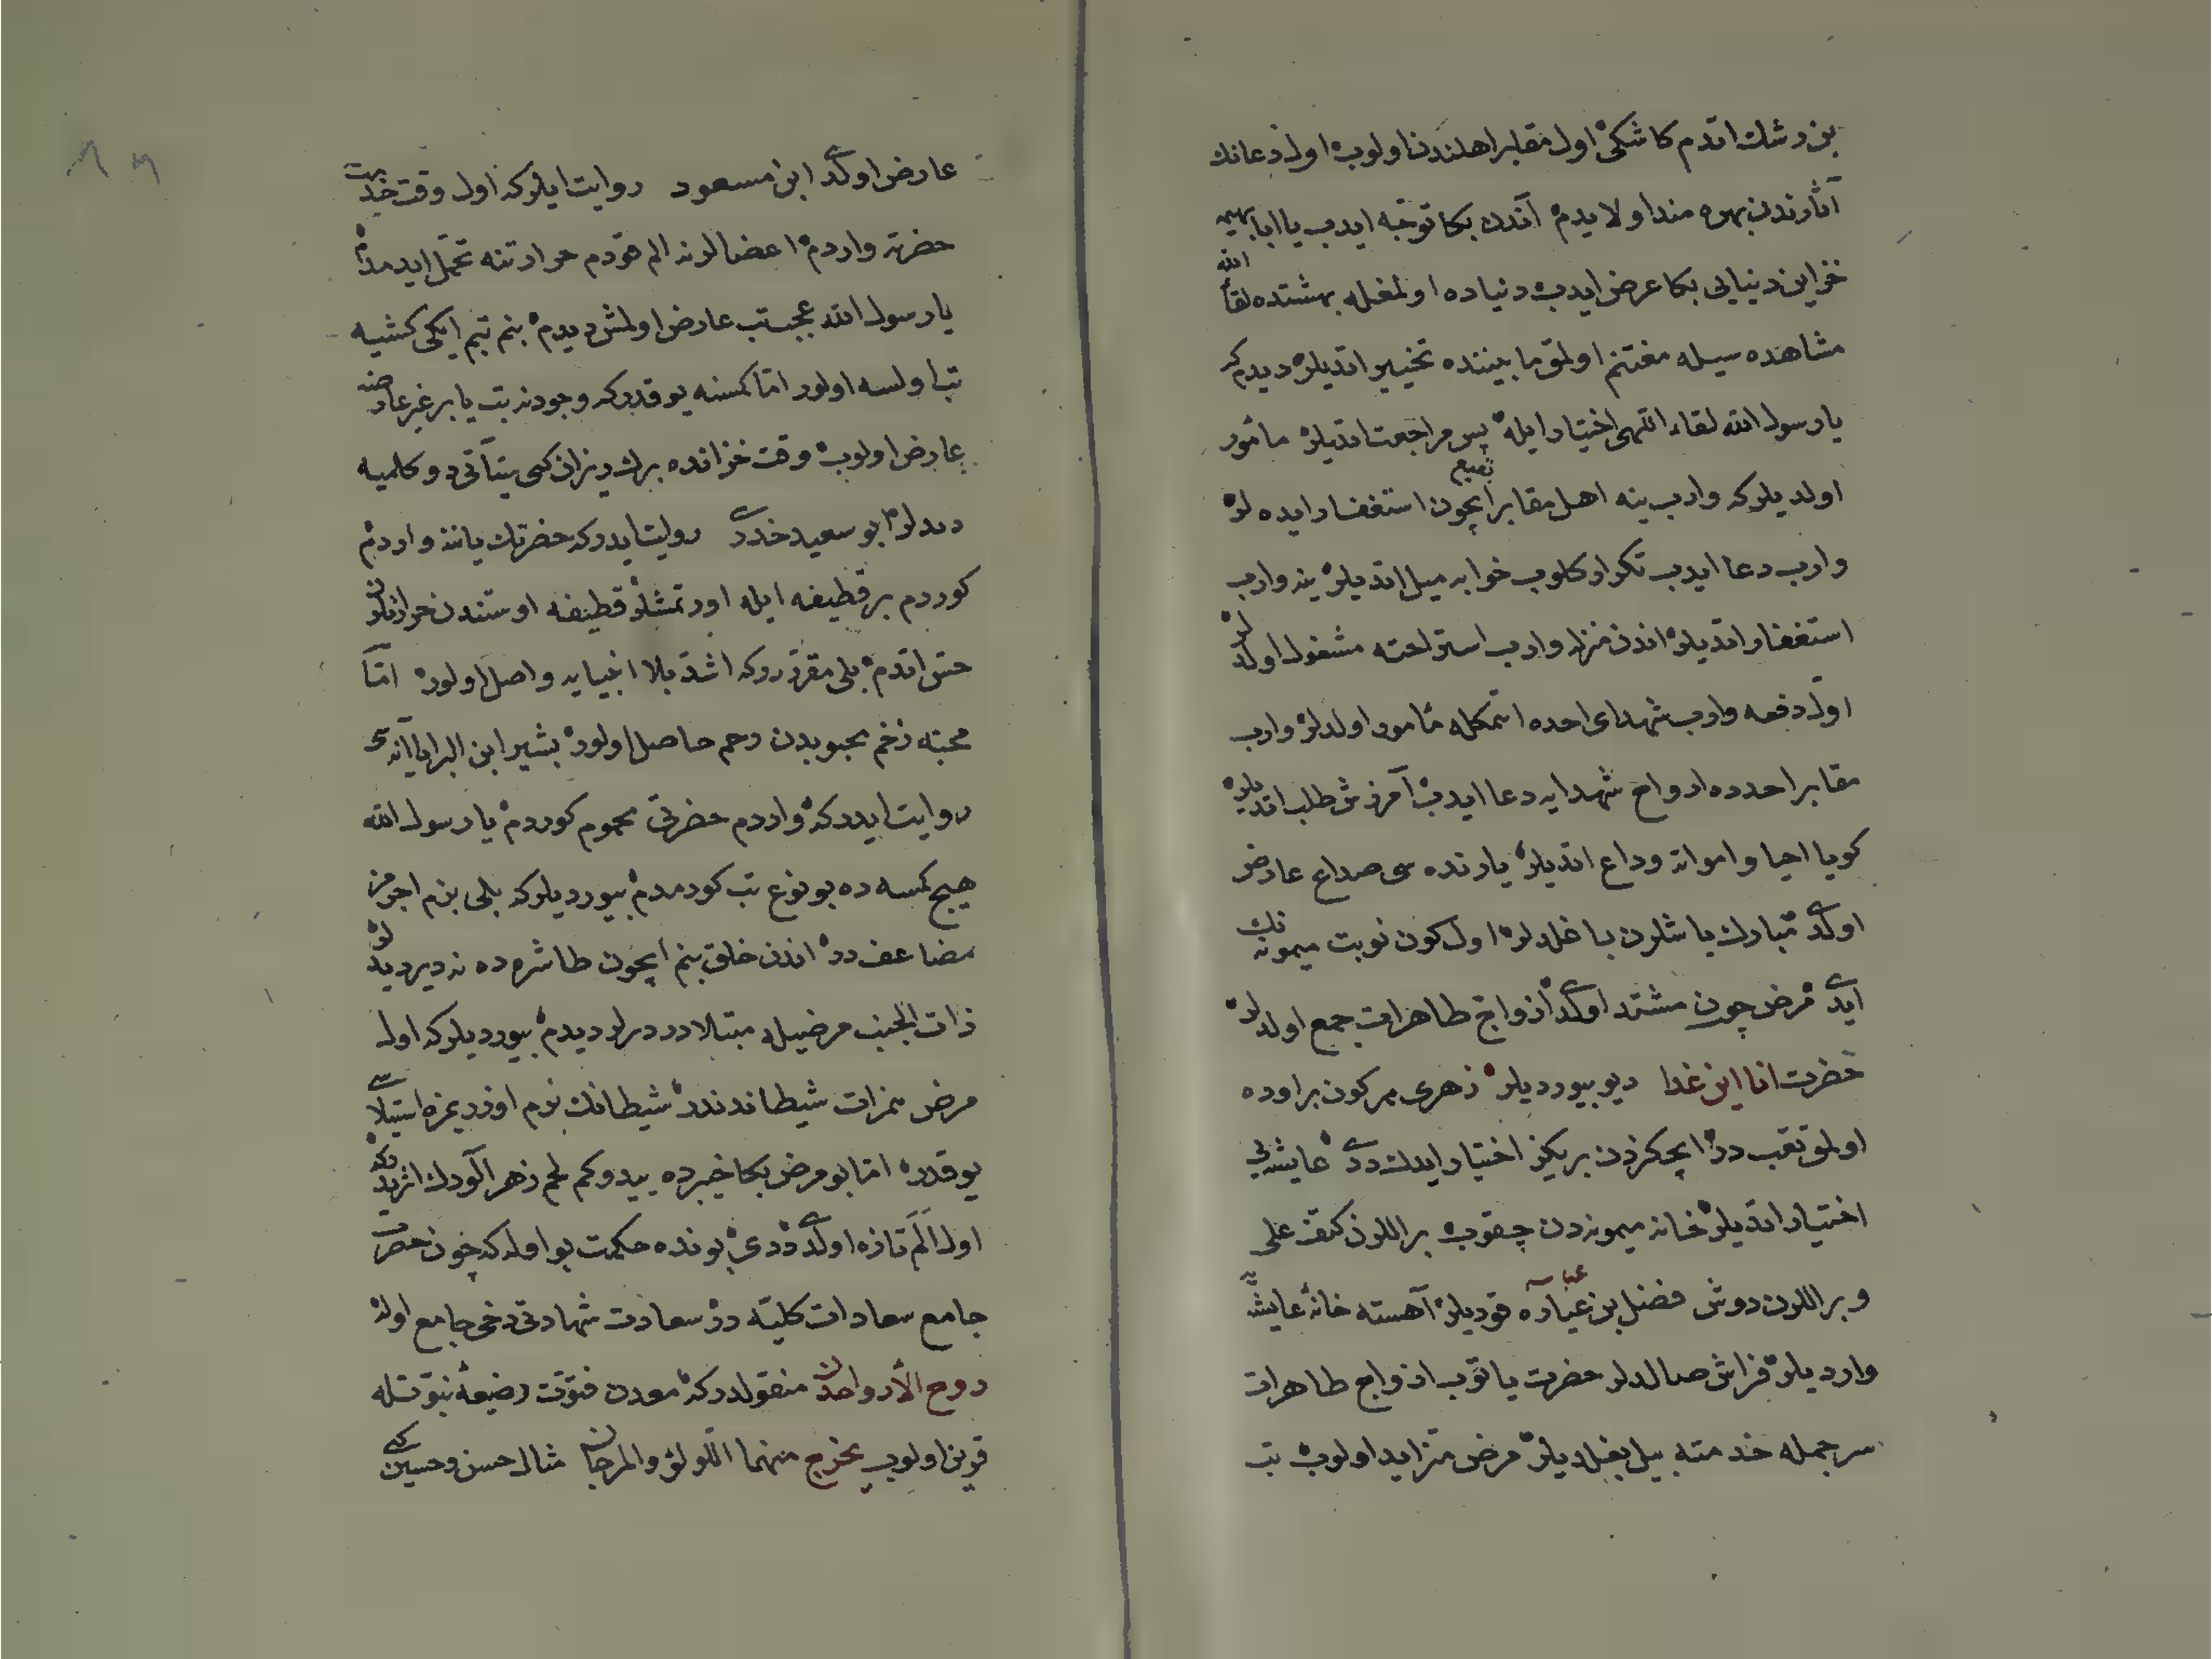 بن رشك اتدم كاشكی اول مقابر اهلندن اولوب اول دعانك
آثارندن بهره مند اولایدم آندن بكا توجّه ایدب یا ابا
خزاین دنیایی بكا عرض ایدب دنیاده اولمغله بهشتده لقاء الله
مشاهده سیله مغتنم اولمق ما بیننده تخییر اتدیلر دیدم كه
یا رسول الله لقاء اللهی اختیار ایله پس مراجعت اتدیلر مأمور
اولدیلر كه وارب ینه اهل مقابر بقیع ایچون استغفار ایده لر
وارب دعا ایدب تكرار كلوب خوابه میل اتدیلر ینه وارب
استغفار اتدیلر اندن منزله وارب استراحته مشغول اولدلر
اول دفعه وارب شهدای احده اتمكله مأمور اولدلر وارب
مقابر احدده ارواح شهدایه دعا ایدب آمرزش طلب اتدیلر
كویا احیا و امواته وداع اتدیلر یارنده سی صداع عارض
اولدی مبارك باشلرن باغلدلر اول كون نوبت میمونه نك
ایدی مرض چون مشتد اولدی ازواج طاهرات جمع اولدلر
حضرت انا این غدا دیو بیوردیلر زهری هر كون بر اوده
اولمق تعب در ایچكزدن بریكز اختیار ایدك دیدی عایشه یی
اختیار اتدیلر خانه میمونه دن چقوب بر اللرن كتف علی
و بر اللرن دوش فضل بن عباسه قودیلر آهسته خانۀ عایشه یه
واردیلر فراش صالدلر حضرت یاتوب ازواج طاهرات
سر جمله خدمته بیل بغلدیلر مرض متزاید اولوب تب
عارض اولدی ابن مسعود روایت ایلر كه اول وقت خدمت
حضرته واردم اعضالرنه الم قودم حرارتنه تحمل ایدمدم
یا رسول الله عجب تب عارض اولمش دیدم بنم تبم ایكی كشیه
تب اولسه اولور امّا كمسنه یوقدر كه وجودنه تب یا بر غیر عارضه
عارض اولوب وقت خزانده برك ریزان كبی
دیدلر ابو سعید خدری روایت ایدر كه حضرتك یاننه واردم
كوردم بر قطیفه ایله اورتمشلر قطیفه اوستندن حرارتلرن
حس اتدم بلی مقرّر در كه اشدّ بلا انبیایه واصل اولور امّا
محبّه زخم محبوبدن رحم حاصل اولور بشیر ابن البرا
روایت ایدر كه واردم حضرتی محموم كوردم یا رسول الله
هیچ كمسه ده بو نوع تب كورمدم بیوردیلر كه بلی بزم اجرمز
مضاعف در اندن خلق بنم ایچون طاشره ده نه دیر دیدیلر
ذات الجنب مرضیله مبتلادر دیرلر دیدم بیوردیلر كه اول
مرض همزات شیطاندندر شیطانك بزم اوزریمزه استیلاسی
یوقدر امّا بو مرض بكا خیبرده یدوكم لحم زهر آلودك اثریدر كه
اول الم تازه اولدی دیدی بونده حكمت بو اوله كه چون حضرت
جامع سعادات كلیّه در سعادت شهادتی دخی جامع اوله
روح الأرواحدن منقولدر كه معدن فتوّت رضیعۀ نبوّتله
قرین اولوب یخرج منهما اللؤلؤ والمرجان مثال حسن و حسین كبی